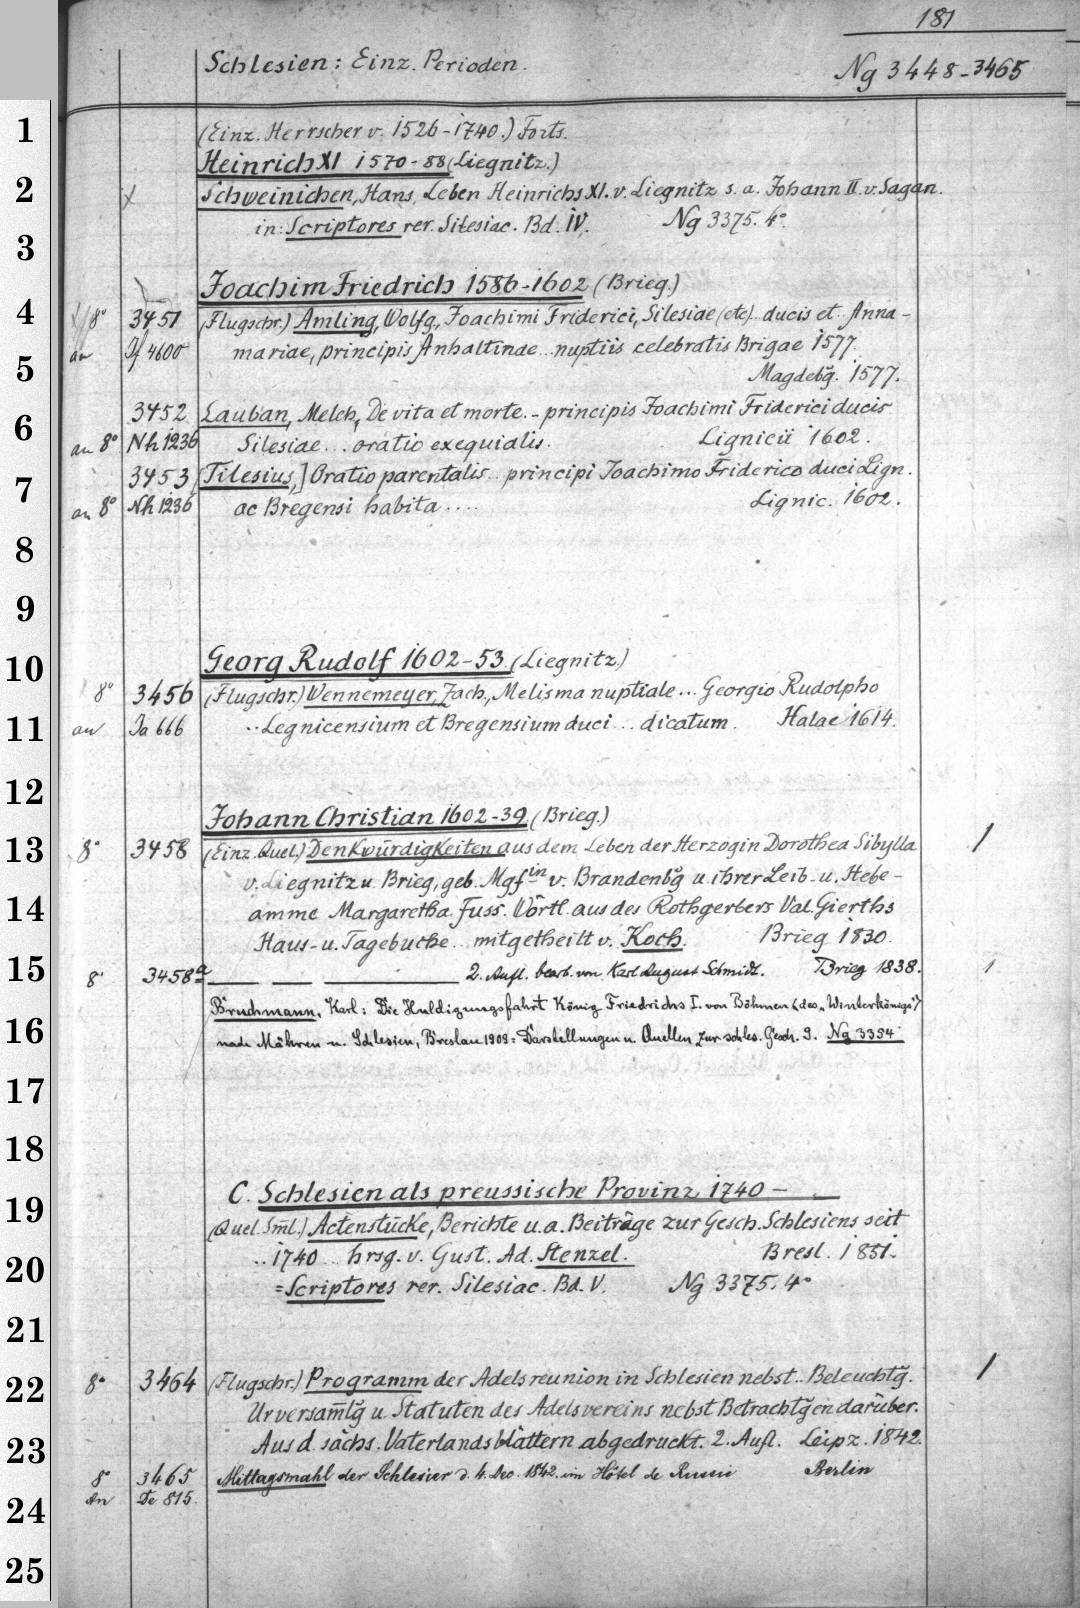 181
Schlesien: Einz. Perioden.
Ng 3448-3465
1
(Einz. Herrscher v. 1526-1740.) Forts.
Heinrich XI 1570-88 (Liegnitz.)
2 x Schweinichen, Hans, Leben Heinrichs XI. v. Liegnitz s. a. Johann II. v. Sagan.
in: Scriptores rer. Silesiac. Bd. IV. Ng 3375. 4°
3
Joachim Friedrich 1586-1602 (Brieg.)
4 8° 3451 (Flugschr.) Amling, Wolfg., Joachimi Friderici, Silesiae (etc)... ducis et Anna-
an 4600 mariae, principis Anhaltinae... nuptiis celebratis Brigae 1577.
5 Magdebg. 1577.
6 3452 Lauban, Melch., De vita et morte.- principis Joachimi Friderici ducis
an 8° Nh 1236 Silesiae... oratio exequialis. Lignicii 1602.
7 3453 [Tilesius,] Oratio parentalis... principi Joachimo Friderico duci Lign.
an 8° Nh 1236 ac Bregensi habita .... Lignic. 1602.
8
9
10 Georg Rudolf 1602-53 (Liegnitz.)
8° 3456 (Flugschr.) Wennemeyer, Zach., Melisma nuptiale... Georgio Rudolpho
11 an Ja 666 ..Legnicensium et Bregensium duci... dicatum. Halae 1614.
12
Johann Christian 1602-39 (Brieg.)
13 8° 3458 (Einz. Quel.) Denkwürdigkeiten aus dem Leben der Herzogin Dorothea Sibylla 1
v. Liegnitz u. Brieg, geb. Mgfin v. Brandenbg u. ihrer Leib- u. Hebe-
14 amme Margaretha Fuss. Wörtl. aus des Rothgerbers Val. Gierths
Haus- u. Tagebuche... mitgetheilt v. Koch. Brieg 1830.
15 8° 3458a — — — 2. Aufl. bearb. von Karl August Schmidt. Brieg 1838. 1
Bruchmann, Karl: Die Huldigungsfahrt König Friedrichs I. von Böhmen (des „Winterkönigs")
16 nach Mähren u. Schlesien, Breslau 1909 = Darstellungen u. Quellen zur schles. Gesch. 9. Ng 3354
17
18
19 C. Schlesien als preussische Provinz 1740 –
(Quel. Sml.) Actenstücke, Berichte u. a. Beiträge zur Gesch. Schlesiens seit
20 ..1740... hrsg. v. Gust. Ad. Stenzel. Bresl. 1851.
=Scriptores rer. Silesiac. Bd. V. Ng 3375. 4°
21
22 8° 3464 (Flugschr.) Programm der Adelsreunion in Schlesien nebst.. Beleuchtg. 1
Urversamlg u. Statuten des Adelsvereins nebst Betrachtgen darüber.
23 Aus d. sächs. Vaterlandsblättern abgedruckt. 2. Aufl. Leipz. 1842.
8° 3465 Mittagsmahl der Schlesier d. 4. Dec. 1842. im Hôtel de Russie Berlin
24 an De 815.
25